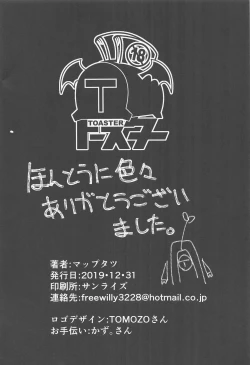 18
T
TOASTER
トースター
ほんとうに色々
ありがとうござい
ました。
T
著者:マップタツ
発行日:2019・12・31
印刷所:サンライズ
連絡先:freewilly3228@hotmail.co.jp
ロゴデザイン:TOMOZOさん
お手伝い:かず。さん